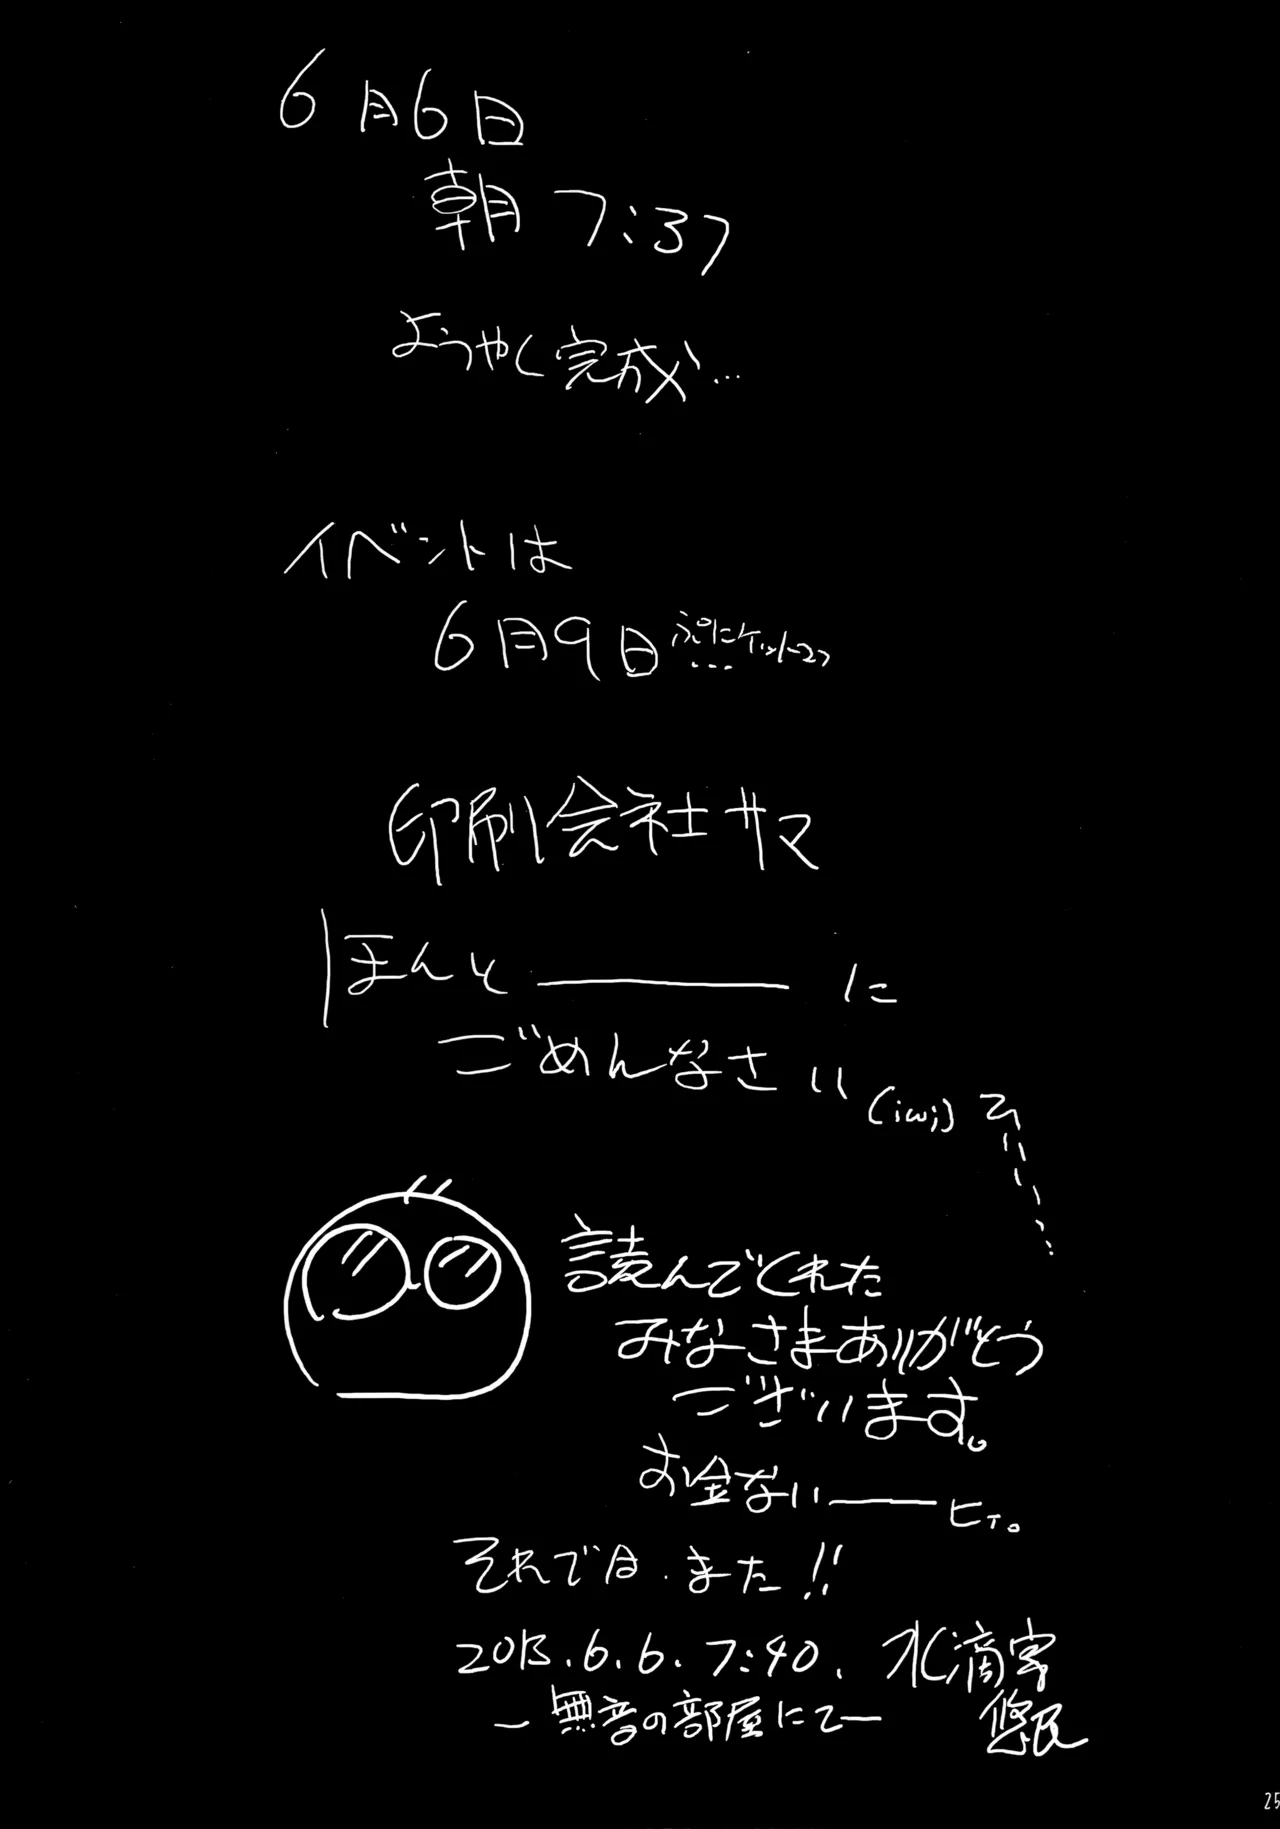 6月6日
朝 7:37
ようやく完成…
イベントは
6月9日 ぷにケット27
…
印刷会社サマ
ほんと――――に
ごめんなさい (;ω;)
読んでくれた
みなさまありがとう
ございます。
お金ない――ヒィ。
それでは、また!!
2013.6.6. 7:40. 水滴
―無音の部屋にて― 悠民
25